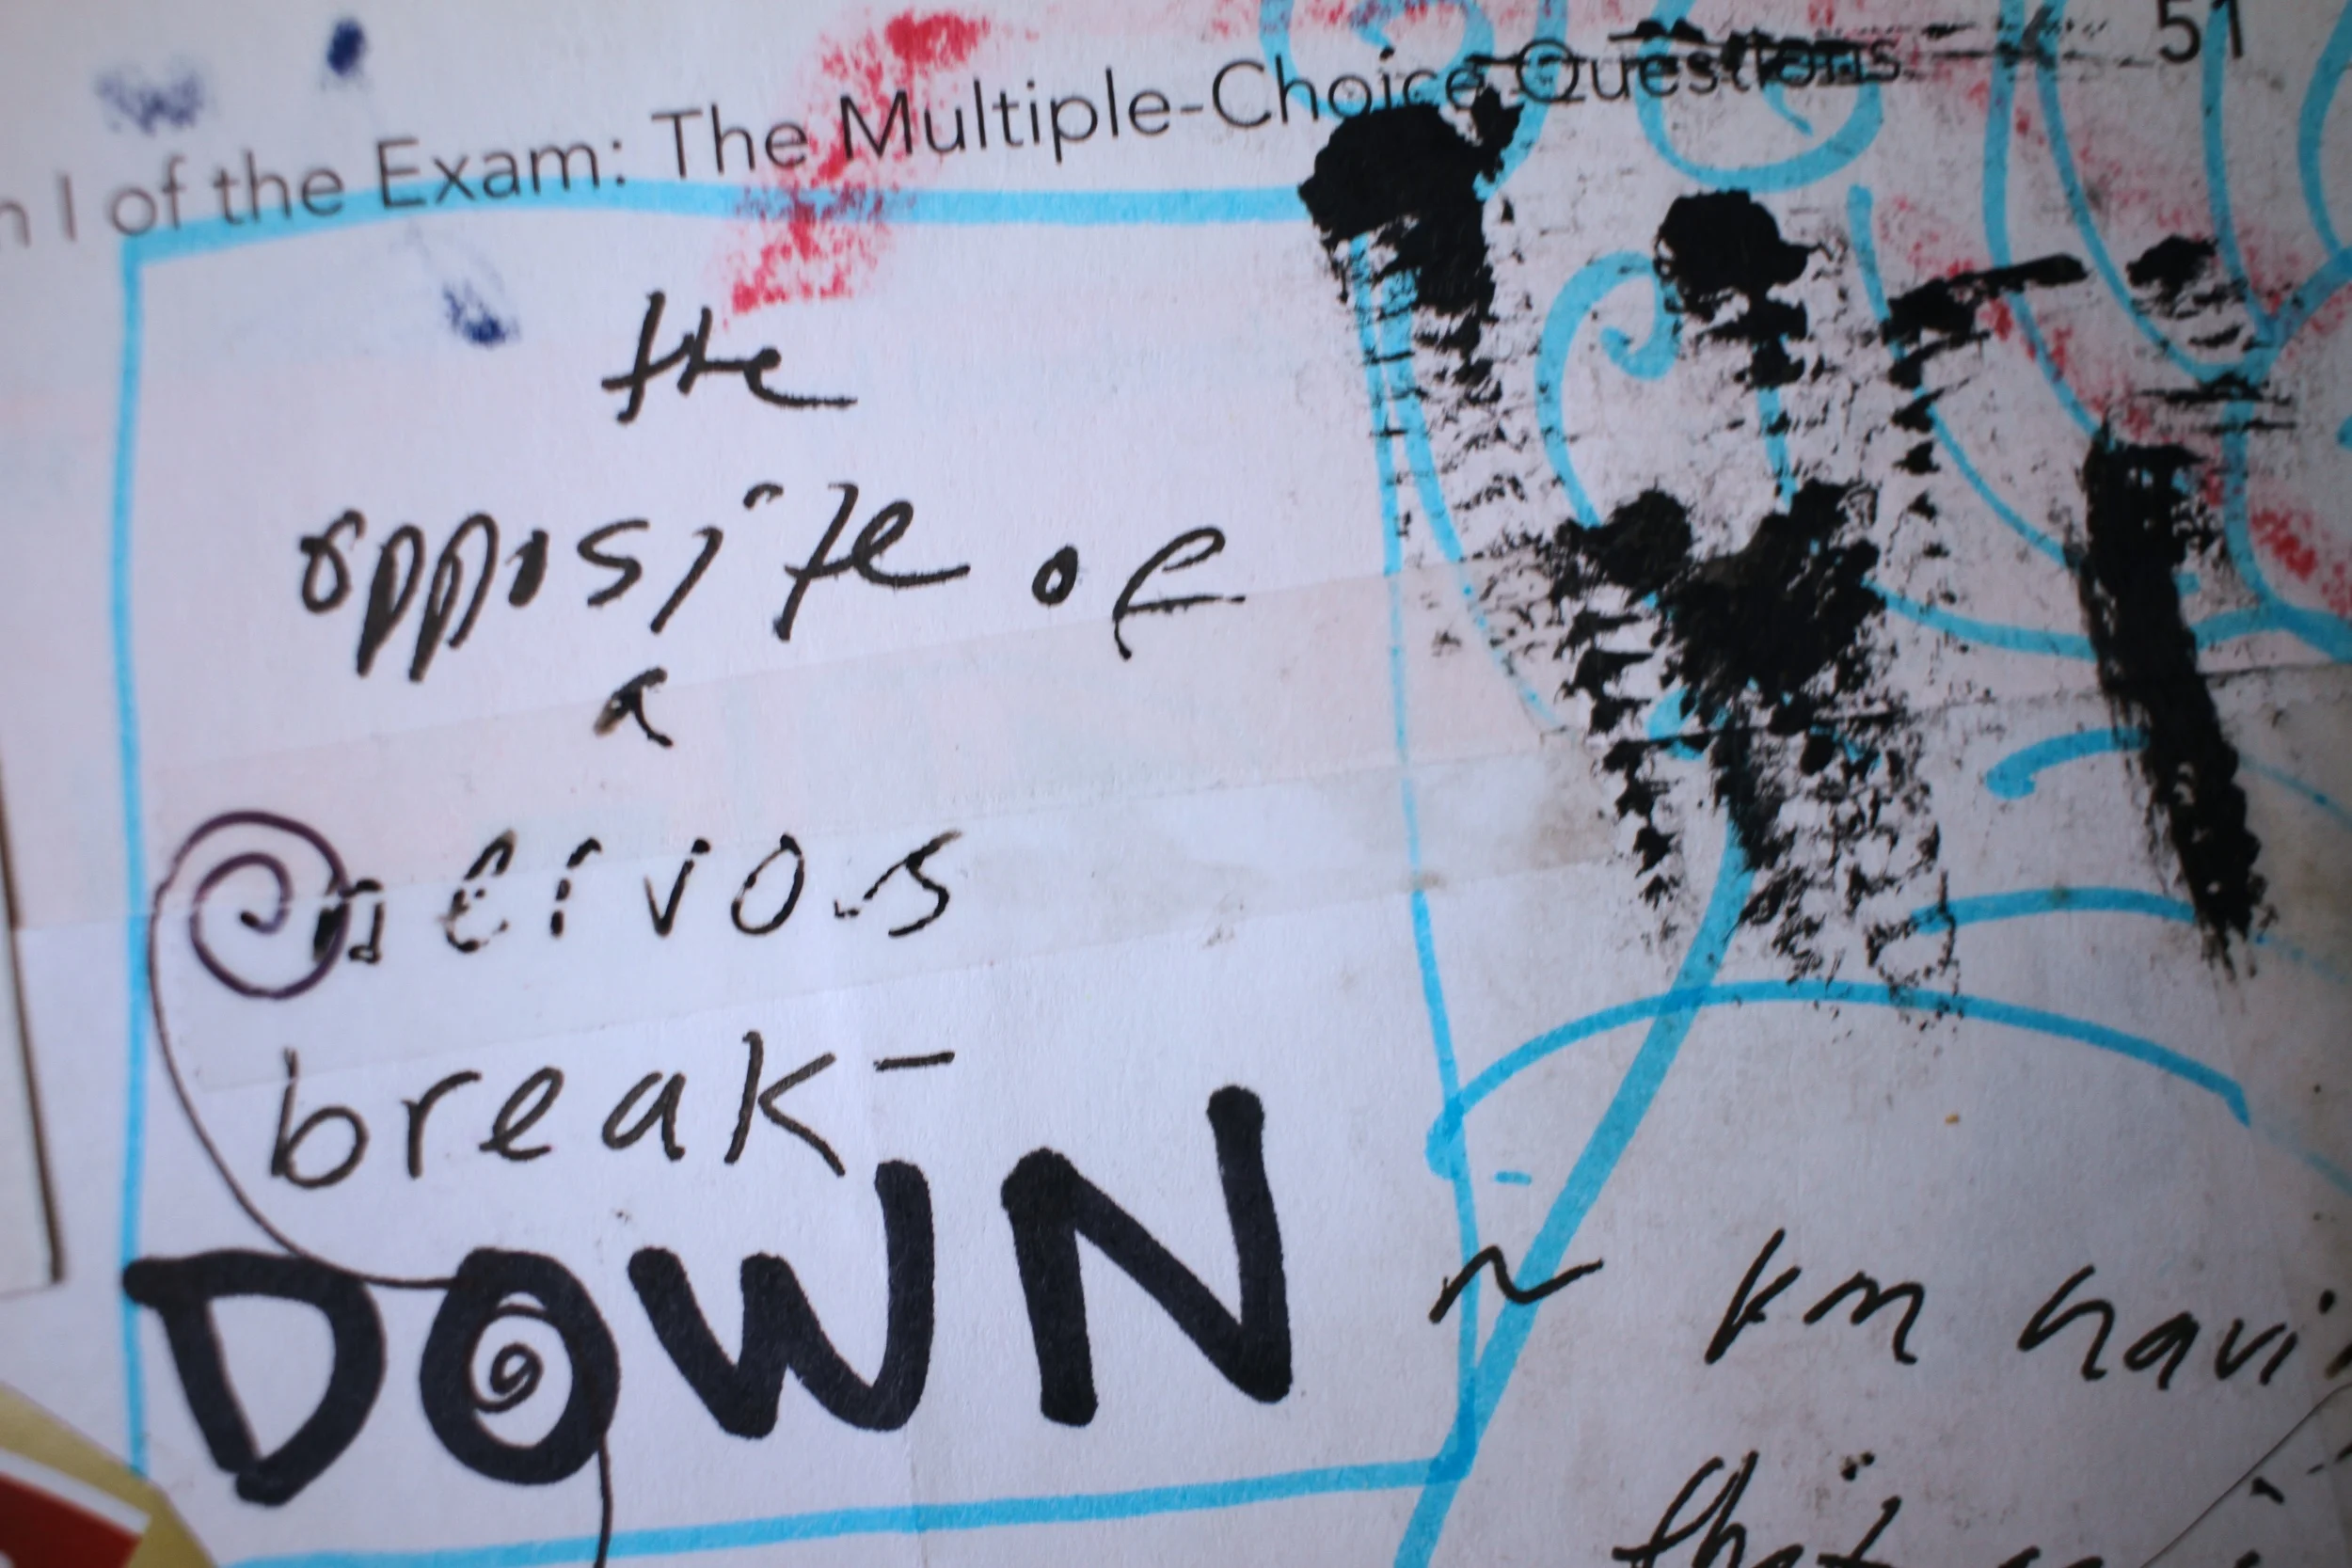 I of the Exam: The Multiple-Choice Questions 51
the
opposite of
a
nervous
break-
DOWN ~
that